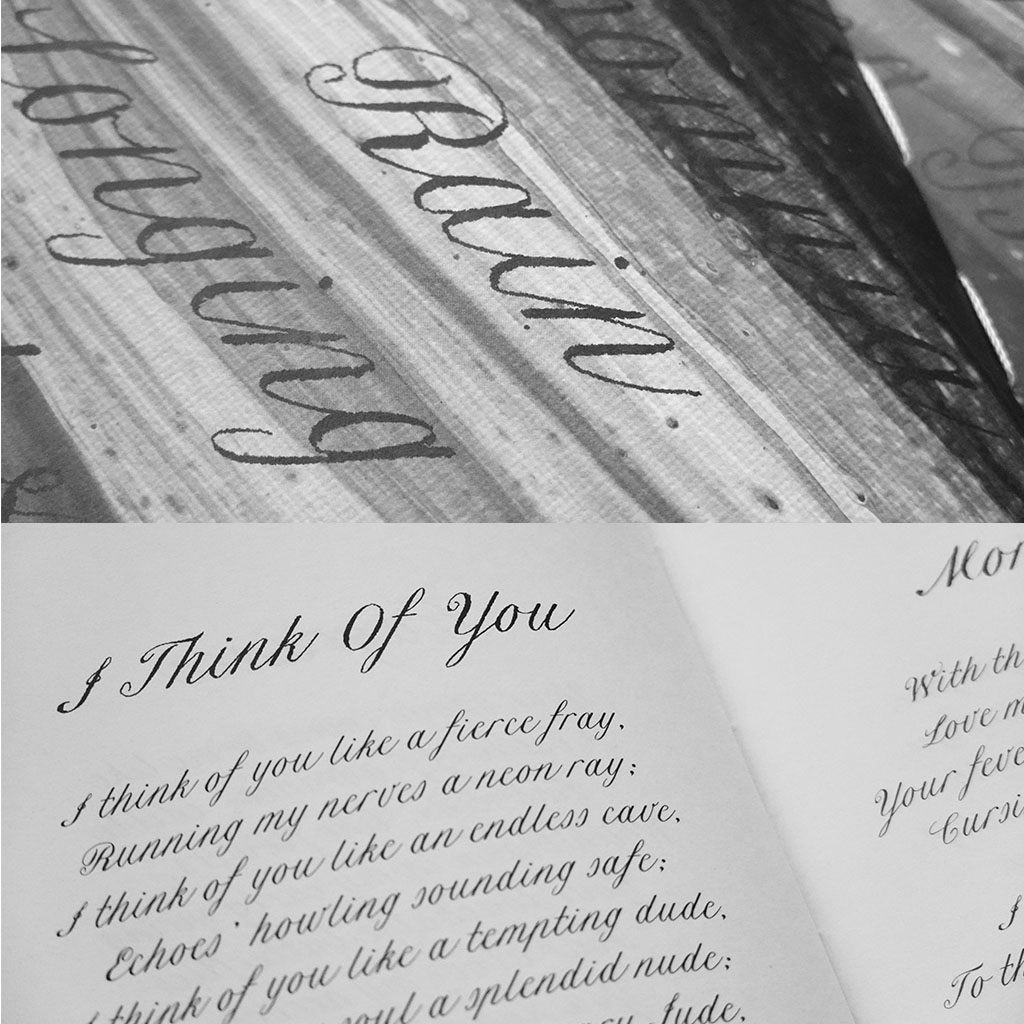 Longing
Rain
I Think Of You
I think of you like a fierce fray,
Running my nerves a neon ray;
I think of you like an endless cave,
Echoes' howling sounding safe;
think of you like a tempting dude,
soul a splendid nude;
Jude,
With th
Love m
Your feve
Cursi
I
To th